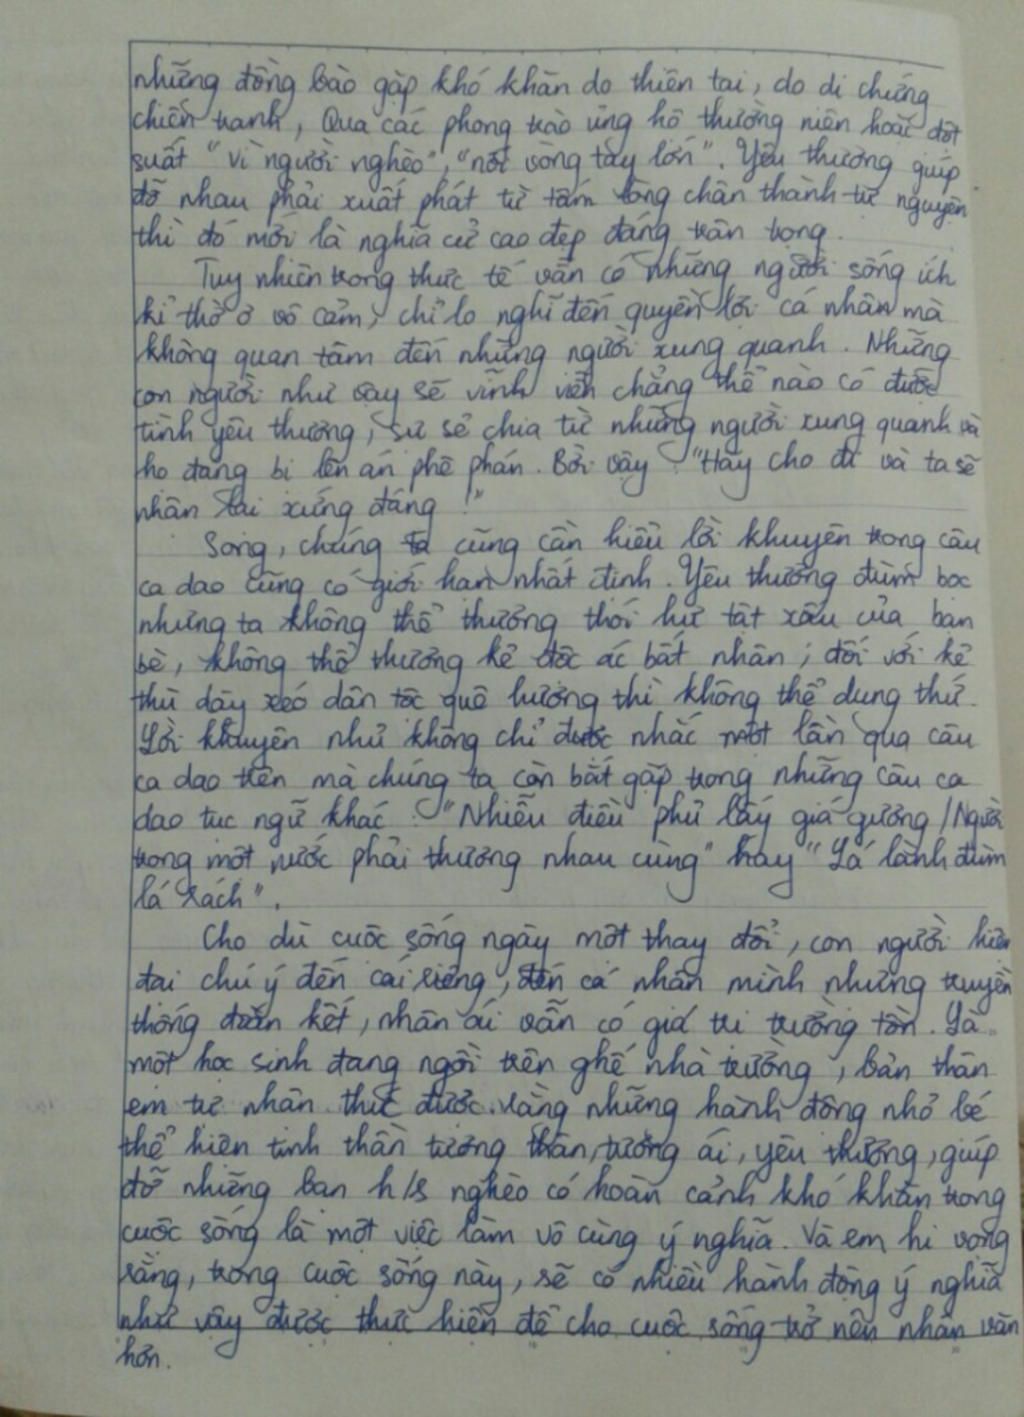 những đồng bào gặp khó khăn do thiên tai, do di chứng
chiến tranh, Qua các phong trào ủng hộ thường niên hoặc đột
suất "Vì người nghèo", "nối vòng tay lớn". Yêu thương giúp
đỡ nhau phải xuất phát từ tấm lòng chân thành tự nguyện
thì đó mới là nghĩa cử cao đẹp đáng trân trọng.
Tuy nhiên trong thực tế vẫn có những người sống ích
kỉ thờ ơ vô cảm, chỉ lo nghĩ đến quyền lợi cá nhân mà
không quan tâm đến những người xung quanh. Những
con người như vậy sẽ vĩnh viễn chẳng thể nào có được
tình yêu thương, sự sẻ chia từ những người xung quanh và
họ đang bị lên án phê phán. Bởi vậy: "Hãy cho đi và ta sẽ
nhận lại xứng đáng!"
Song, chúng ta cũng cần hiểu lời khuyên trong câu
ca dao cũng có giới hạn nhất định. Yêu thương đùm bọc
nhưng ta không thể thương thói hư tật xấu của bạn
bè, không thể thương kẻ độc ác bất nhân; đối với kẻ
thù dày xéo dân tộc quê hương thì không thể dung thứ.
Lời khuyên như không chỉ được nhắc một lần qua câu
ca dao trên mà chúng ta còn bắt gặp trong những câu ca
dao tục ngữ khác: "Nhiễu điều phủ lấy giá gương / Người
trong một nước phải thương nhau cùng" hay "Lá lành đùm
lá rách".
Cho dù cuộc sống ngày một thay đổi, con người hiện
đại chú ý đến cái riêng, đến cá nhân mình nhưng truyền
thống đoàn kết, nhân ái vẫn có giá trị trường tồn. Là
một học sinh đang ngồi trên ghế nhà trường, bản thân
em tự nhận thức được rằng những hành động nhỏ bé
thể hiện tinh thần tương thân, tương ái, yêu thương, giúp
đỡ những bạn h/s nghèo có hoàn cảnh khó khăn trong
cuộc sống là một việc làm vô cùng ý nghĩa. Và em hi vọng
rằng, trong cuộc sống này, sẽ có nhiều hành động ý nghĩa
như vậy được thực hiện để cho cuộc sống trở nên nhân văn
hơn.